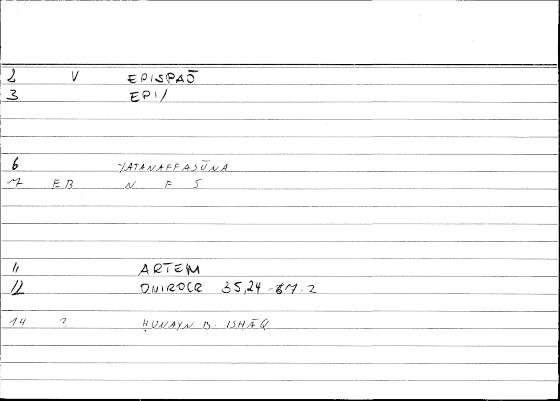 2 V EPISPAŌ
3 EPI/
6 YATANAFFASŪNA
7 EB N F S
11 ARTEM
12 ONIROCR 35,24 - 67.2
14 2 ḤUNAYN B. ISḤĀQ